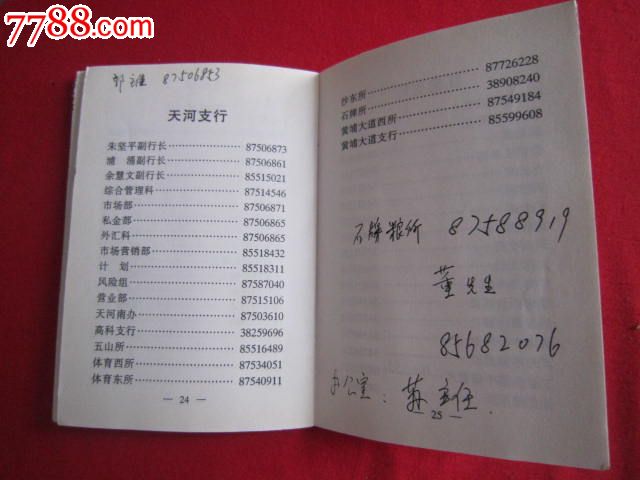 7788.com
中国收藏热线
郭主任 87506853
天河支行
朱坚平副行长 87506873
浦 涌副行长 87506861
余慧文副行长 85515021
综合管理科 87514546
市场部 87506871
私金部 87506865
外汇科 87506865
市场营销部 85518432
计 划 85518311
风险组 87587040
营业部 87515106
天河南办 87503610
高科支行 38259696
五山所 85516489
体育西所 87534051
体育东所 87540911
— 24 —
沙东所 87726228
石牌所 38908240
黄埔大道西所 87549184
黄埔大道支行 85599608
石牌粮所 87588919
董先生
85682076
办公室: 苏主任.
— 25 —